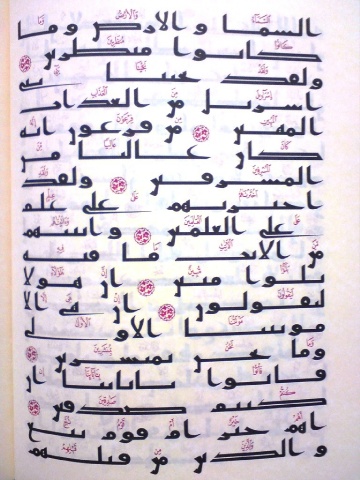 السما و الارض وما
كانوا منظرين
ولقد نجينا بنى
اسريل من العذاب
المهين من فرعون انه
كان عاليا من
المسرفين ولقد
اخترنهم على علم
على العلمين و اتينهم
من الايت ما فيه
بلوا مبين ان هولا
ليقولون ان هى الا
موتتنا الاولى
وما نحن بمنشرين
فاتوا بابائنا ان
كنتم صدقين
اهم خير ام قوم تبع
و الذين من قبلهم